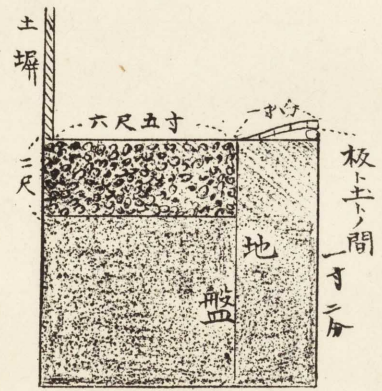 土塀
六尺五寸
二尺
板ト土トノ間
一寸二分
地
盤